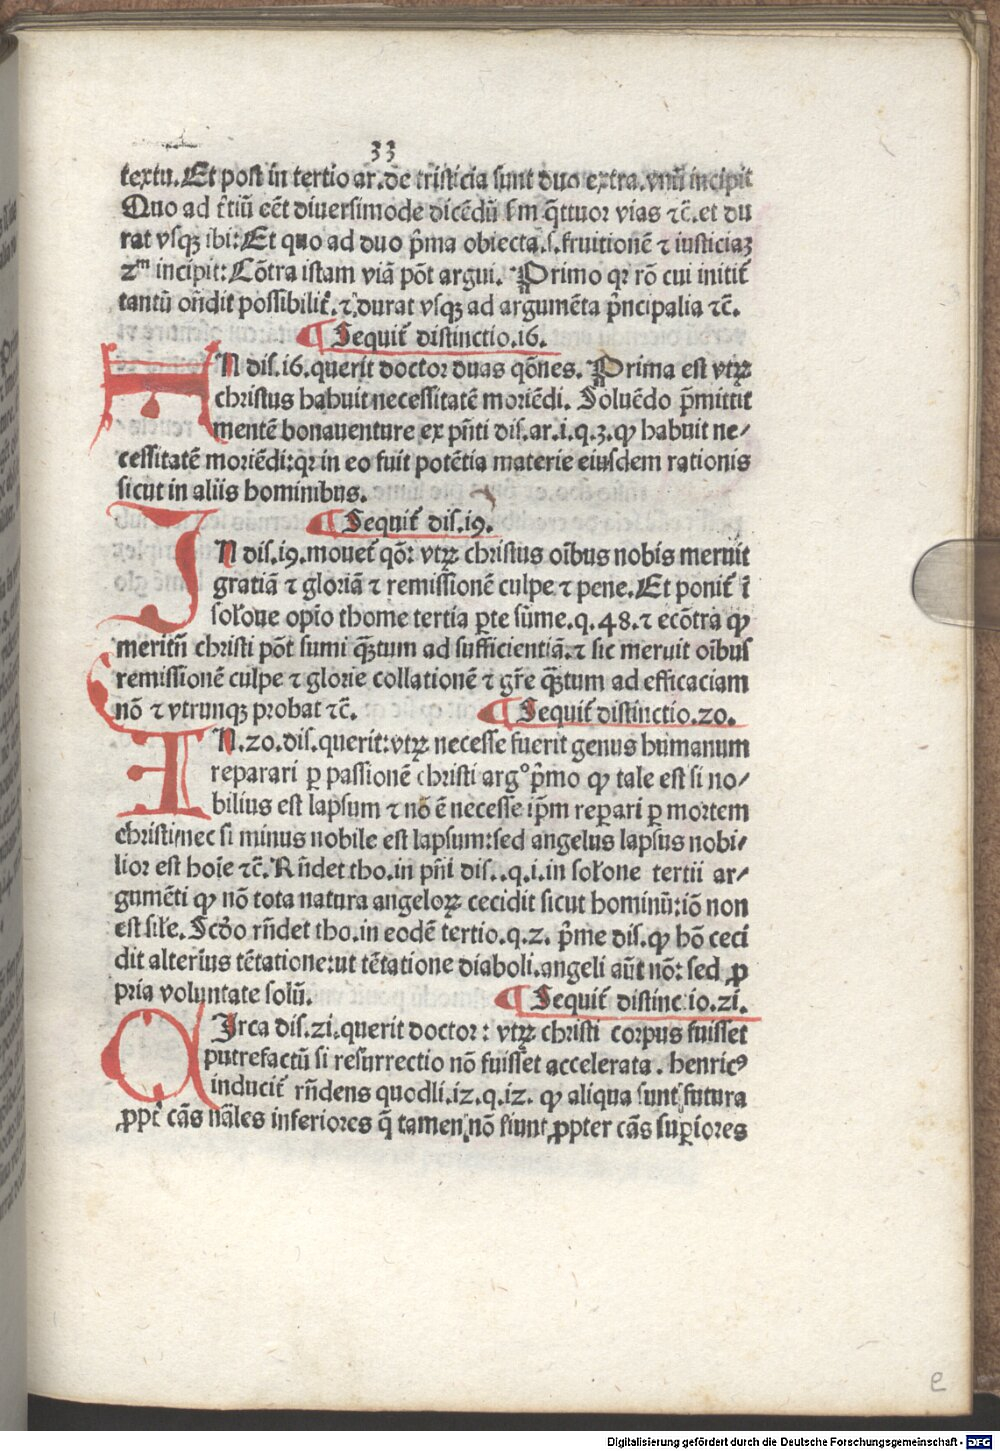 33
textu. Et post in tertio ar. de tristicia sunt duo extra. vnū incipit
Quo ad t̄tiū eēt diuersimode dicēdū sm q̄ttuor vias ⁊c̄. et du
rat vsqꝫ ibi: Et quo ad duo p̄ma obiecta .s. fruitionē ⁊ iusticiaꝫ
2ᵐ incipit: Cōtra istam viā pōt argui. Primo qꝛ rō cui initit̄
tantū oñdit possibilit̄. ⁊ durat vsqꝫ ad argumēta p̄ncipalia ⁊c̄.
¶ Sequit̄ distinctio .16.
N dis. 16. querit doctor duas qōnes. Prima est vtꝝ
christus habuit necessitatē moriēdi. Soluēdo p̄mittit
mentē bonauenture ex pn̄ti dis. ar. i. q. 3. ꝙ habuit ne/
cessitatē moriēdi: qꝛ in eo fuit potētia materie eiusdem rationis
sicut in aliis hominibus.
¶ Sequit̄ dis. i9.
IN dis. i9. mouet̄ qō: vtꝝ christus oībus nobis meruit
gratiā ⁊ gloriā ⁊ remissionē culpe ⁊ pene. Et ponit̄ ī
solone opīo thome tertia ꝑte sūme. q. 48. ⁊ ecōtra ꝙ
meritū christi pōt sumi qꝫtum ad sufficientiā. ⁊ sic meruit oībus
remissionē culpe ⁊ glorie collationē ⁊ gr̄e qꝫtum ad efficaciam
nō ⁊ vtrunqꝫ probat ⁊c̄.
¶ Sequit̄ distinctio. 20.
IN. 20. dis. querit: vtꝝ necesse fuerit genus humanum
reparari ꝑ passionē christi arg° p̄mo ꝙ tale est si no/
bilius est lapsum ⁊ nō ē necesse ip̄m reꝑari ꝑ mortem
christi/nec si minus nobile est lapsum: sed angelus lapsus nobi/
lior est hoīe ⁊c̄. Rn̄det tho. in pn̄i dis. . q. i. in solone tertii ar/
gumēti ꝙ nō tota natura angeloꝝ cecidit sicut hominū: iō non
est sile. Scd̄o rn̄det tho. in eodē tertio. q. 2. p̄me dis. ꝙ hō ceci
dit alterius tētatione: ut tētatione diaboli. angeli aūt nō: sed ꝓ
pria voluntate solū.
¶ Sequit̄ distinctio. 2i.
Irca dis. 2i. querit doctor: vtꝝ christi corpus fuisset
putrefactū si resurrectio nō fuisset accelerata. henricꝰ
inducit̄ rn̄dens quodli. i2. q. i2. ꝙ aliqua sunt futura
ꝓpt̄ cās nāles inferiores q̄ tamen nō fiunt ꝓpter cās suꝑiores
e
Digitalisierung gefördert durch die Deutsche Forschungsgemeinschaft - DFG